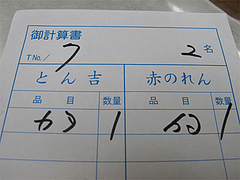 御計算書
T No. / 7 2 名
とん吉 赤のれん
品目 数量 品目 数量
カヲ 1 1